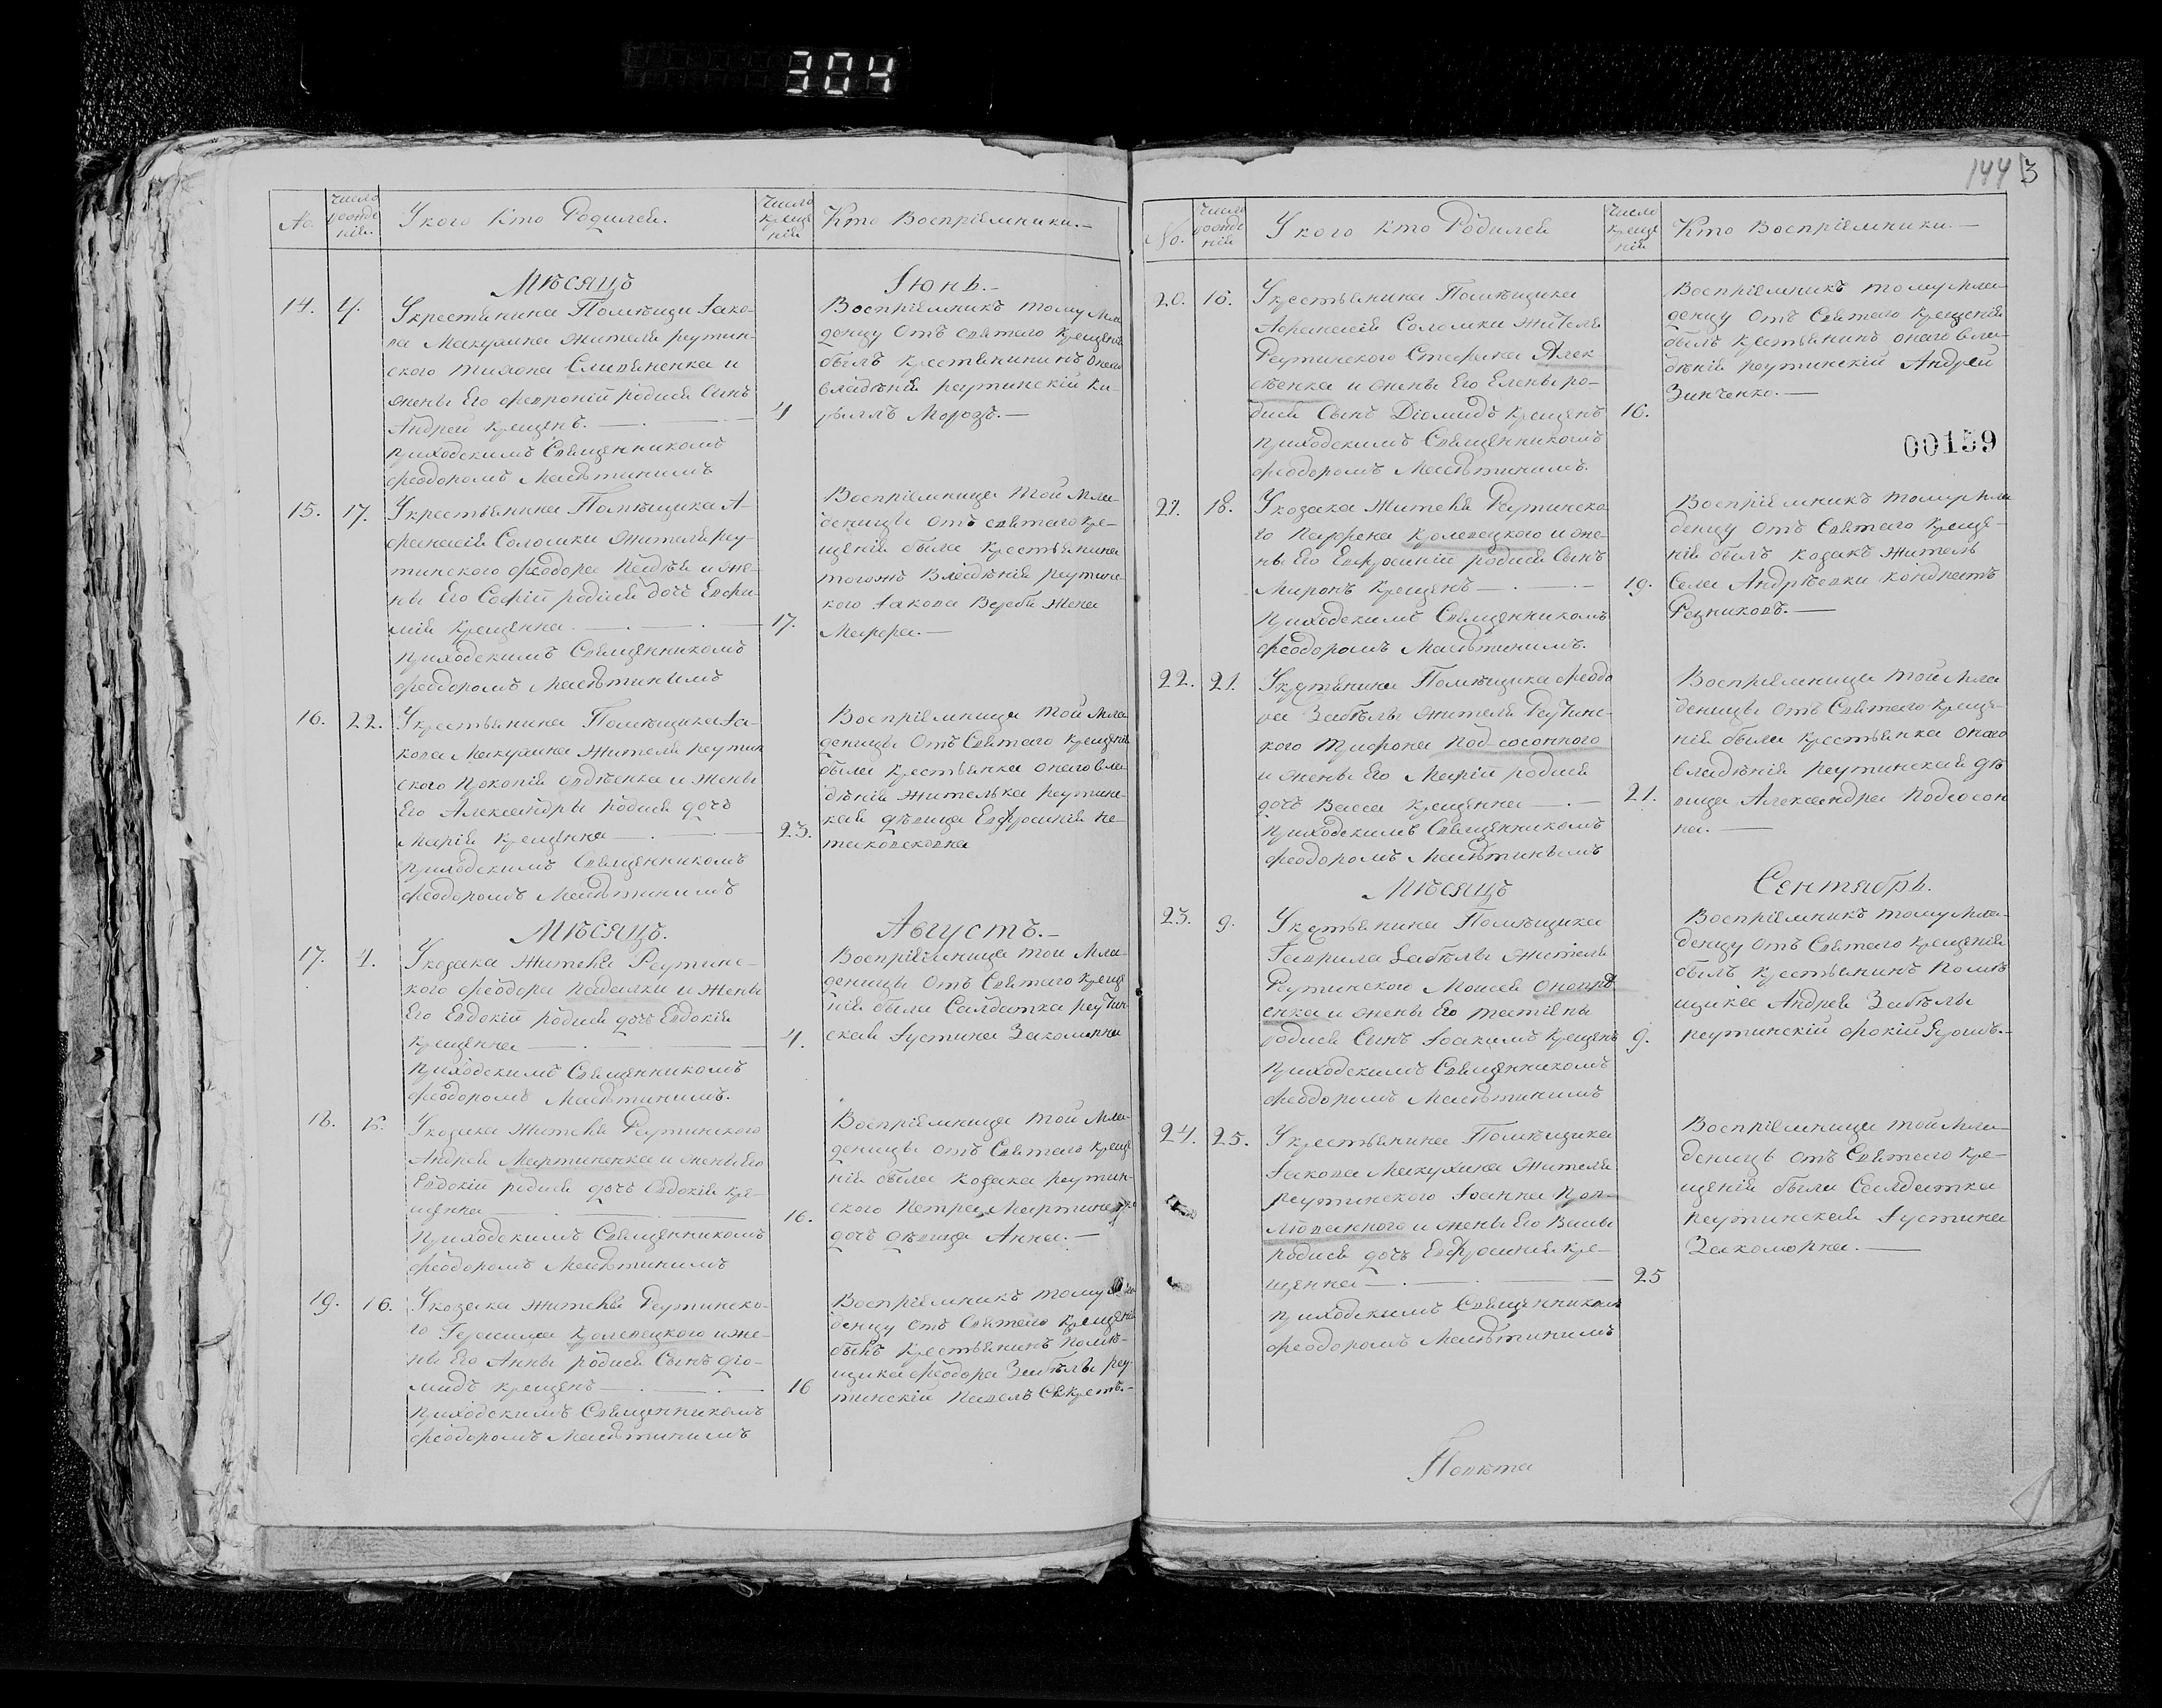 304
144 3
No.
Число рожде нія.
У кого кто Родился.
Число креще нія
Кто Воспріемники.—
Мѣсяцъ
Іюнь.—
14. 4.
Укрестянина Помѣщи Іако-
ва Макухина жителя реутин-
ского Тихона и
жены Его Февроніи родися Сынъ
Андрей крещенъ.
приходскимъ Священникомъ
Феодоромъ
4
Воспріемникъ тому мла
денцу Отъ святаго крещенія
былъ крестянининъ Онаго
владѣнія реутинскій Ки-
риллъ Морозъ.—
15. 17.
Укрестьянина Помѣщика А-
фанасія Соломки жителя реу-
тинского Феодора и же-
ны Его Софіи родися дочь Евфи-
мія крещенна.
приходскимъ Священникомъ
Феодоромъ
17.
Воспріемница той мла
деницы отъ святаго кре-
щенія была крестьянина
тогожъ Владѣнія реутинс-
кого Іакова Вербы жена
Марфа.—
16. 22.
Укрестьянина Помѣщика Іа-
кова Макухина жителя реутин
ского Прокопія Овдѣенка и жены
Его Александры родися дочь
Марія крещенна
приходскимъ Священникомъ
Феодоромъ
23.
Воспріемница той мла
деницы Отъ Святаго крещенія
была крестьянка онаго вла-
дѣнія жителька реутинс-
кая дѣвица Евфросинія
Мѣсяцъ.
Августъ.—
17. 4.
Укозака жителя Реутинс-
кого Феодора и жены
Его Евдокіи родися дочь Евдокія
крещенна
приходскимъ Священникомъ
Феодоромъ
4.
Воспріемница той мла-
деницы Отъ Святаго креще
нія была Салдатка реутин
ская Іустина Закоморна
18. 15.
Укозака жителя Реутинского
Андрея Мартиненка и жены Его
Евдокіи родися дочь Евдокія кре-
щенна
приходскимъ Священникомъ
Феодоромъ
16.
Воспріемница той мла-
деницы отъ Святаго креще
нія была козака реутин-
ского Петра
дочь дѣвица Анна.—
19. 16.
Укозака жителя Реутинско-
го Герасима Кролевецкого и же-
ны Его Анны родися Сынъ Діо-
мидъ крещенъ
приходскимъ Священникомъ
Феодоромъ
16
Воспріемникъ тому мла
денцу отъ Святаго крещенія
былъ крестьянинъ помѣ-
щика Феодора Забѣлы реу-
тинскій Павелъ
No.
Число рожде нія
У кого кто Родился
Число креще нія
Кто Воспріемники.—
20. 16.
Укрестьянина Помѣщика
Афанасія Соломки жителя
Реутинского Стефана Алек-
сѣенка и жены Его Елены ро-
дися Сынъ Діомидъ крещенъ
приходскимъ Священникомъ
Феодоромъ
16.
Воспріемникъ тому мла-
денцу Отъ Святаго крещенія
былъ крестьянинъ онаго вла-
дѣнія реутинскій Андрей
Зинченко.—
00159
21. 18.
Укозака жителя Реутинско
го Парфена Кролевецкого и же-
ны Его Евфросиніи родися Сынъ
Миронъ крещенъ
приходскимъ Священникомъ
Феодоромъ
19.
Воспріемникъ тому мла
денцу Отъ Святаго креще-
нія былъ козакъ житель
Села Андрѣевки Кондратъ
Резниковъ.—
22. 21.
Укрстянина Помѣщика Феодо
ра Забѣлы жителя Реутинс-
кого Трифона Под-сосонного
и жены Его Маріи родися
дочь Васса крещенна
приходскимъ Священникомъ
Феодоромъ
21.
Воспріемница той мла
деницы отъ Святаго креще-
нія была крестьянка онаго
владѣнія реутинская дѣ
вица Александра Подсосон
на.—
Мѣсяцъ
Сентябрь.
23. 9.
Укрстянина Помѣщика
Гаврила Забѣлы жителя
Реутинского Моисея Оноприе
енка и жены Его Татіяны
родися Сынъ Іоакимъ крещенъ
приходскимъ Священникомъ
Феодоромъ
9.
Воспріемникъ тому мла-
денцу отъ Святаго крещенія
былъ крестьянинъ помѣ
щика Андрея Забѣлы
реутинскій Фокій
24. 25.
Укрестьянина Помѣщика
Іакова Макухина жителя
реутинского Іоанна
и жены Его
родися дочь Евфросинія кре-
щенна
приходскимъ Священникомъ
Феодоромъ
25
Воспріемница той мла-
деницы отъ Святаго кре-
щенія была Салдатка
реутинская Іустина
Закоморна.—